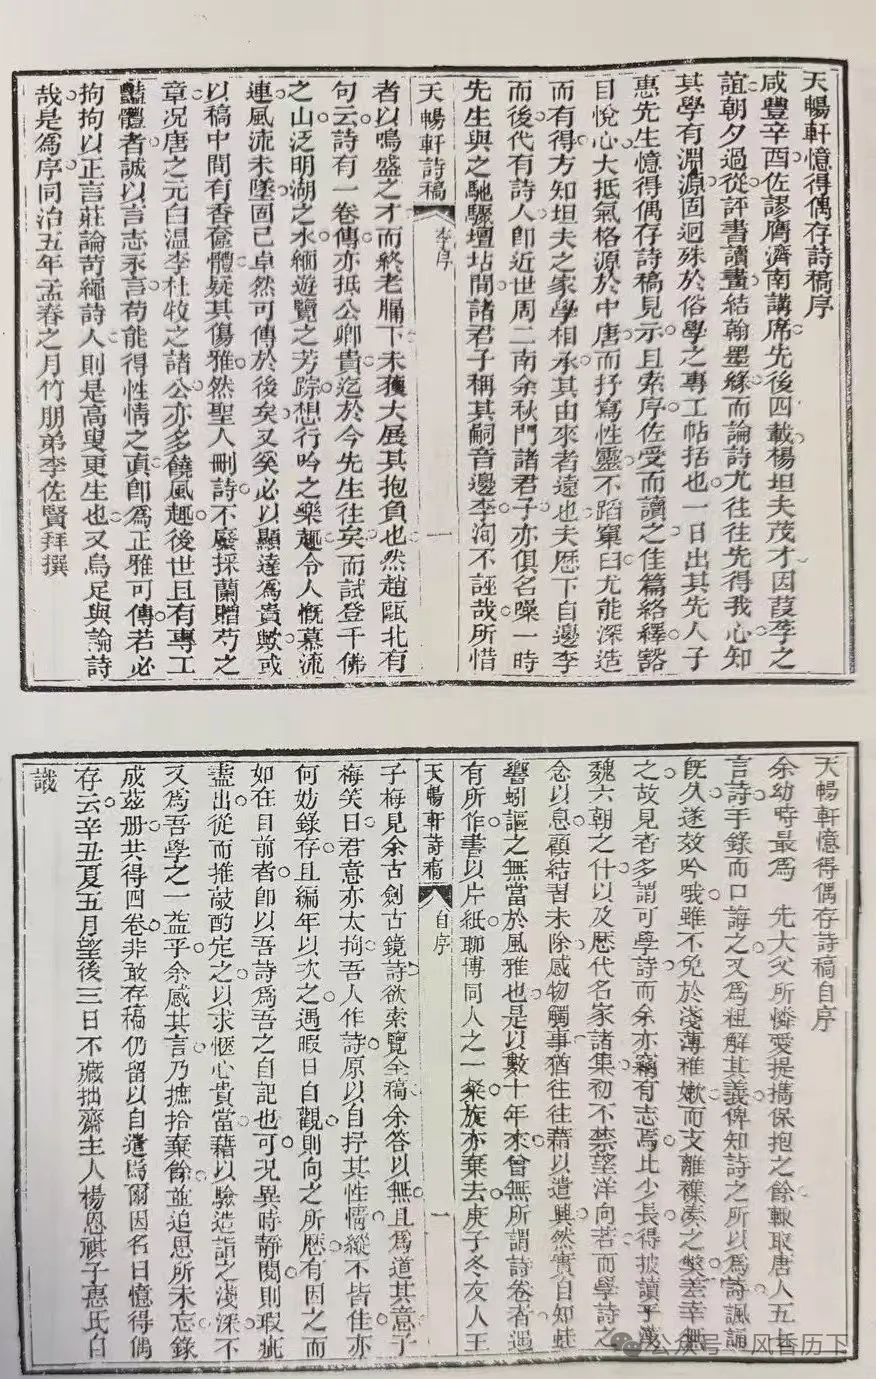 天暢軒憶得偶存詩稿序
咸豐辛酉佐謬膺濟南講席先後四載楊坦夫茂才因葭莩之
誼朝夕過從評書讀畫結翰墨緣而論詩尤往往先得我心知
其學有淵源固迥殊於俗學之專工帖括也一日出其先人子
惠先生憶得偶存詩稿見示且索序佐受而讀之佳篇絡繹豁
目悅心大抵氣格源於中唐而抒寫性靈不蹈窠臼尤能深造
而有得方知坦夫之家學相承其由來者遠也夫歷下自邊李
而後代有詩人卽近世周二南余秋門諸君子亦俱名噪一時
先生與之馳驟壇坫閒諸君子稱其嗣音邊李洵不誣哉所惜
天暢軒詩稿 李序 一
者以鳴盛之才而終老牖下未獲大展其抱負也然趙甌北有
句云詩有一卷傳亦抵公卿貴迄於今先生往矣而試登千佛
之山泛明湖之水緬遊覽之芳踪想行吟之樂趣令人慨慕流
連風流未墜固已卓然可傳於後矣又奚必以顯達為貴歟或
以稿中間有香奩體疑其傷雅然聖人刪詩不廢採蘭贈芍之
章况唐之元白溫李杜牧之諸公亦多饒風趣後世且有專工
豔體者誠以言志永言苟能得性情之眞卽為正雅可傳若必
拘拘以正言莊論苛繩詩人則是高叟更生也又烏足與論詩
哉是為序同治五年孟春之月竹朋弟李佐賢拜撰
天暢軒憶得偶存詩稿自序
余幼時最為 先大父所憐愛提攜保抱之餘輒取唐人五七
言詩手錄而口誨之又為粗解其義俾知詩之所以為詩諷誦
既久遂效吟哦雖不免於淺薄稚嫩而支離襍湊之弊差幸無
之故見者多謂可學詩而余亦竊有志焉比少長得披讀乎漢
魏六朝之什以及歷代名家諸集初不禁望洋向若而學詩之
念以息顧結習未除感物觸事猶往往藉以遣興然實自知蛙
響蚓謳之無當於風雅也是以數十年來曾無所謂詩卷者遇
有所作書以片紙聊博同人之一粲旋亦棄去庚子冬友人王
天暢軒詩稿 自序 一
子梅見余古劍古鏡詩欲索覽全稿余答以無且為道其意子
梅笑曰君意亦太拘吾人作詩原以自抒其性情縱不皆佳亦
何妨錄存且編年以次之遇暇日自觀則向之所歷有因之而
如在目前者卽以吾詩為吾之自記也可况異時靜閱則瑕疵
盡出從而推敲酌定之以求愜心貴當藉以驗造詣之淺深不
又為吾學之一益乎余感其言乃摭拾棄餘並追思所未忘錄
成茲册共得四卷非敢存稿仍留以自遣焉爾因名曰憶得偶
存云辛丑夏五月望後三日不藏拙齋主人楊恩祺子惠氏自
識
公众号·风雷历下